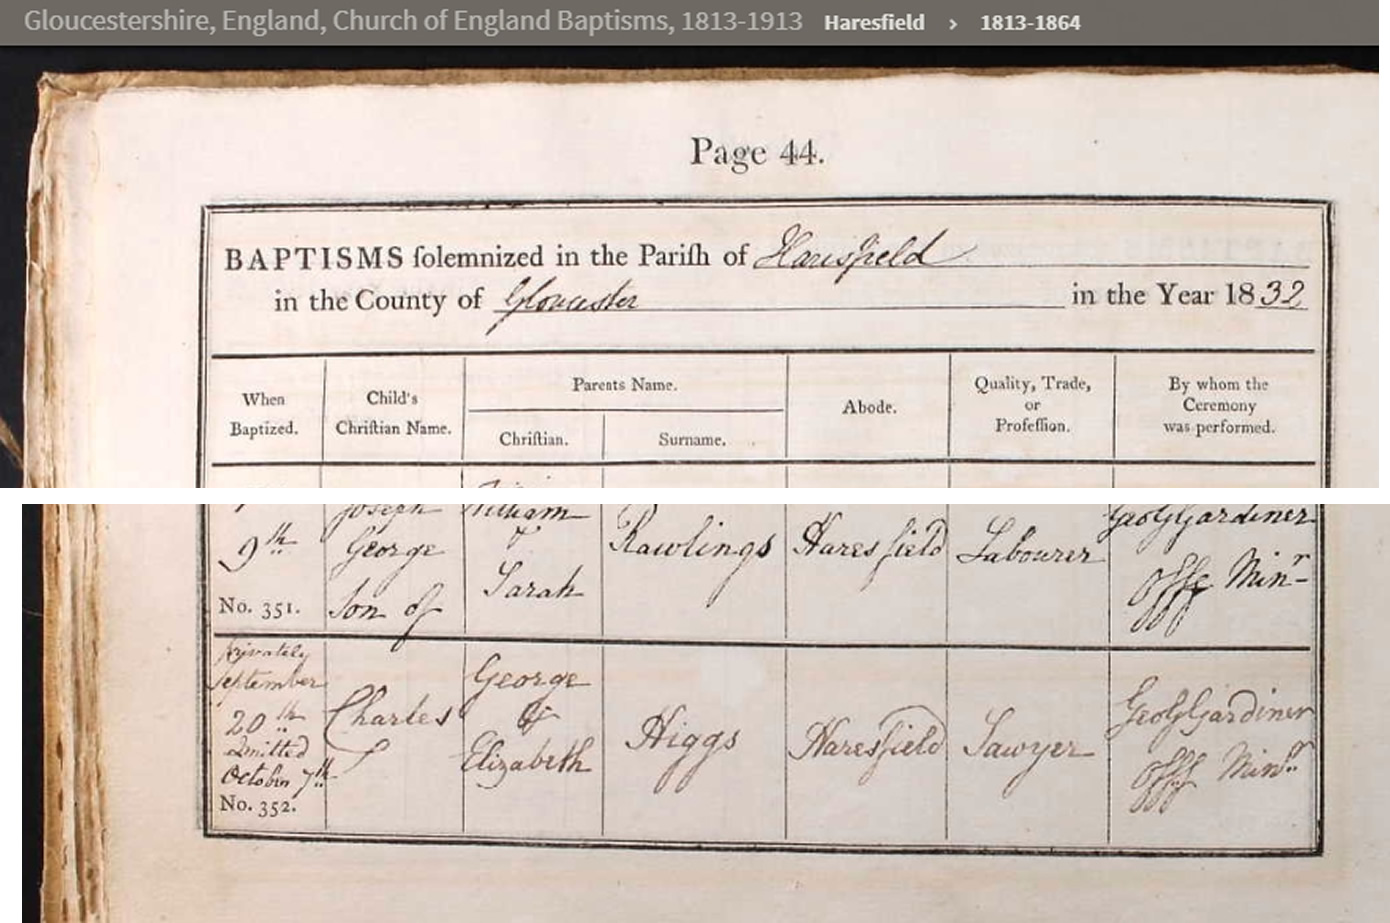 Gloucestershire, England, Church of England Baptisms, 1813-1913 Haresfield › 1813-1864
Page 44.
BAPTISMS ſolemnized in the Pariſh of Haresfield
in the County of Gloucester in the Year 1832
When
Baptized.
Child's
Chriſtian Name.
Parents Name.
Chriſtian.
Surname.
Abode.
Quality, Trade,
or
Profeſſion.
By whom the
Ceremony
was performed.
9th
No. 351.
Joseph
George
Son of
William
&
Sarah
Rawlings
Haresfield
Labourer
Geo G Gardiner
Offg Minr
privately
September
20th
Admitted
October 7th
No. 352.
Charles
George
&
Elizabeth
Higgs
Haresfield
Sawyer
Geo G Gardiner
Offg Minr